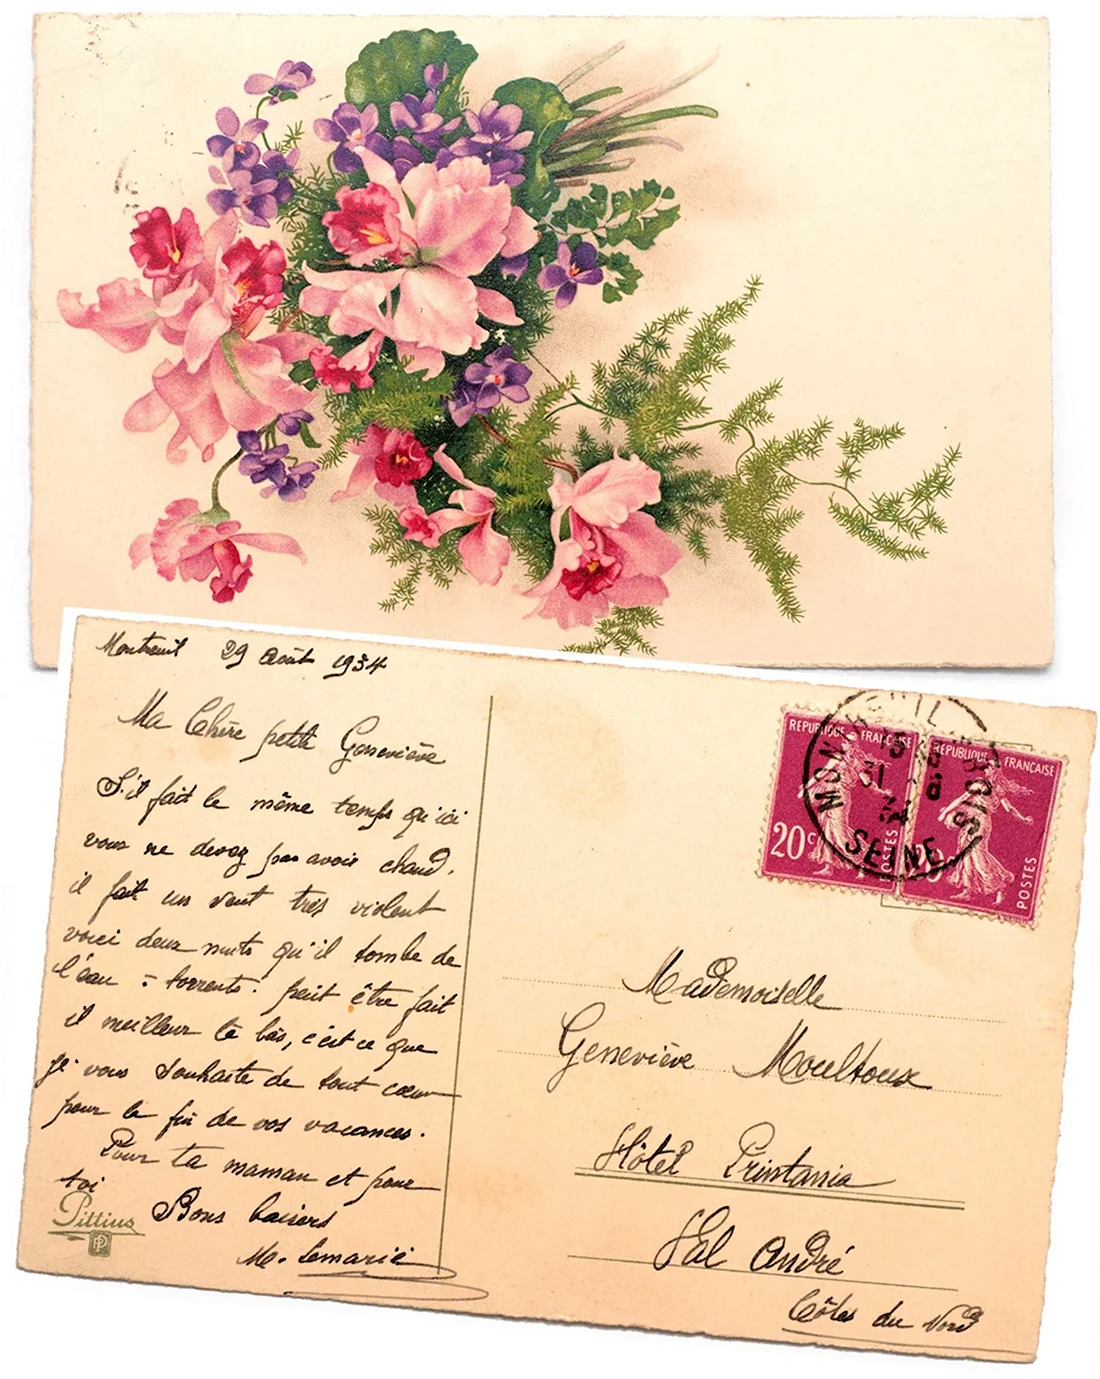 Montreuil 29 Août 1934
Ma Chère petite Geneviève
S'il fait le même temps qu'ici
vous ne devez pas avoir chaud.
il fait un vent très violent
voici deux nuits qu'il tombe de
l'eau à torrents. peut être fait
il meilleur là bas, c'est ce que
je vous souhaite de tout cœur
pour la fin de vos vacances.
Pour ta maman et pour
toi
Bons baisers
M. Lemarié
Pittius
PP
REPUBLIQUE FRANÇAISE
20c
POSTES
REPUBLIQUE FRANÇAISE
20c
POSTES
MONTREUIL S BOIS
15
31 8
34
SEINE
Mademoiselle
Geneviève Moultoux
Hôtel Printania
Val André
Côtes du Nord